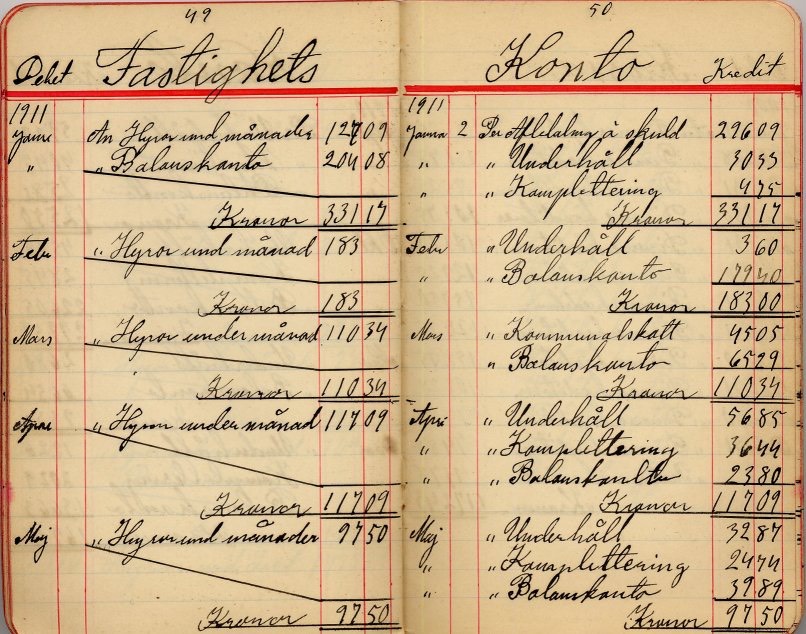 49
Debet Fastighets
1911
Janu An Hyror und månader 127 09
" " Balanskonto 204 08
Kronor 331 17
Febr " Hyror und månad 183
Kronor 183
Mars " Hyror under månad 110 34
Kronor 110 34
Apri " Hyror under månad 117 09
Kronor 117 09
Maj " Hyror und månader 97 50
Kronor 97 50
50
Konto Kredit
1911
Janua 2 Per Afbetalng å skuld 296 09
" " Underhåll 30 33
" " Komplettering 4 75
Kronor 331 17
Febr " Underhåll 3 60
" " Balanskonto 179 40
Kronor 183 00
Mars " Kommunalskatt 45 05
" Balanskonto 65 29
Kronor 110 34
Apri " Underhåll 56 85
" " Komplettering 36 44
" " Balanskonto 23 80
Kronor 117 09
Maj " Underhåll 32 87
" " Komplettering 24 74
" " Balanskonto 39 89
Kronor 97 50